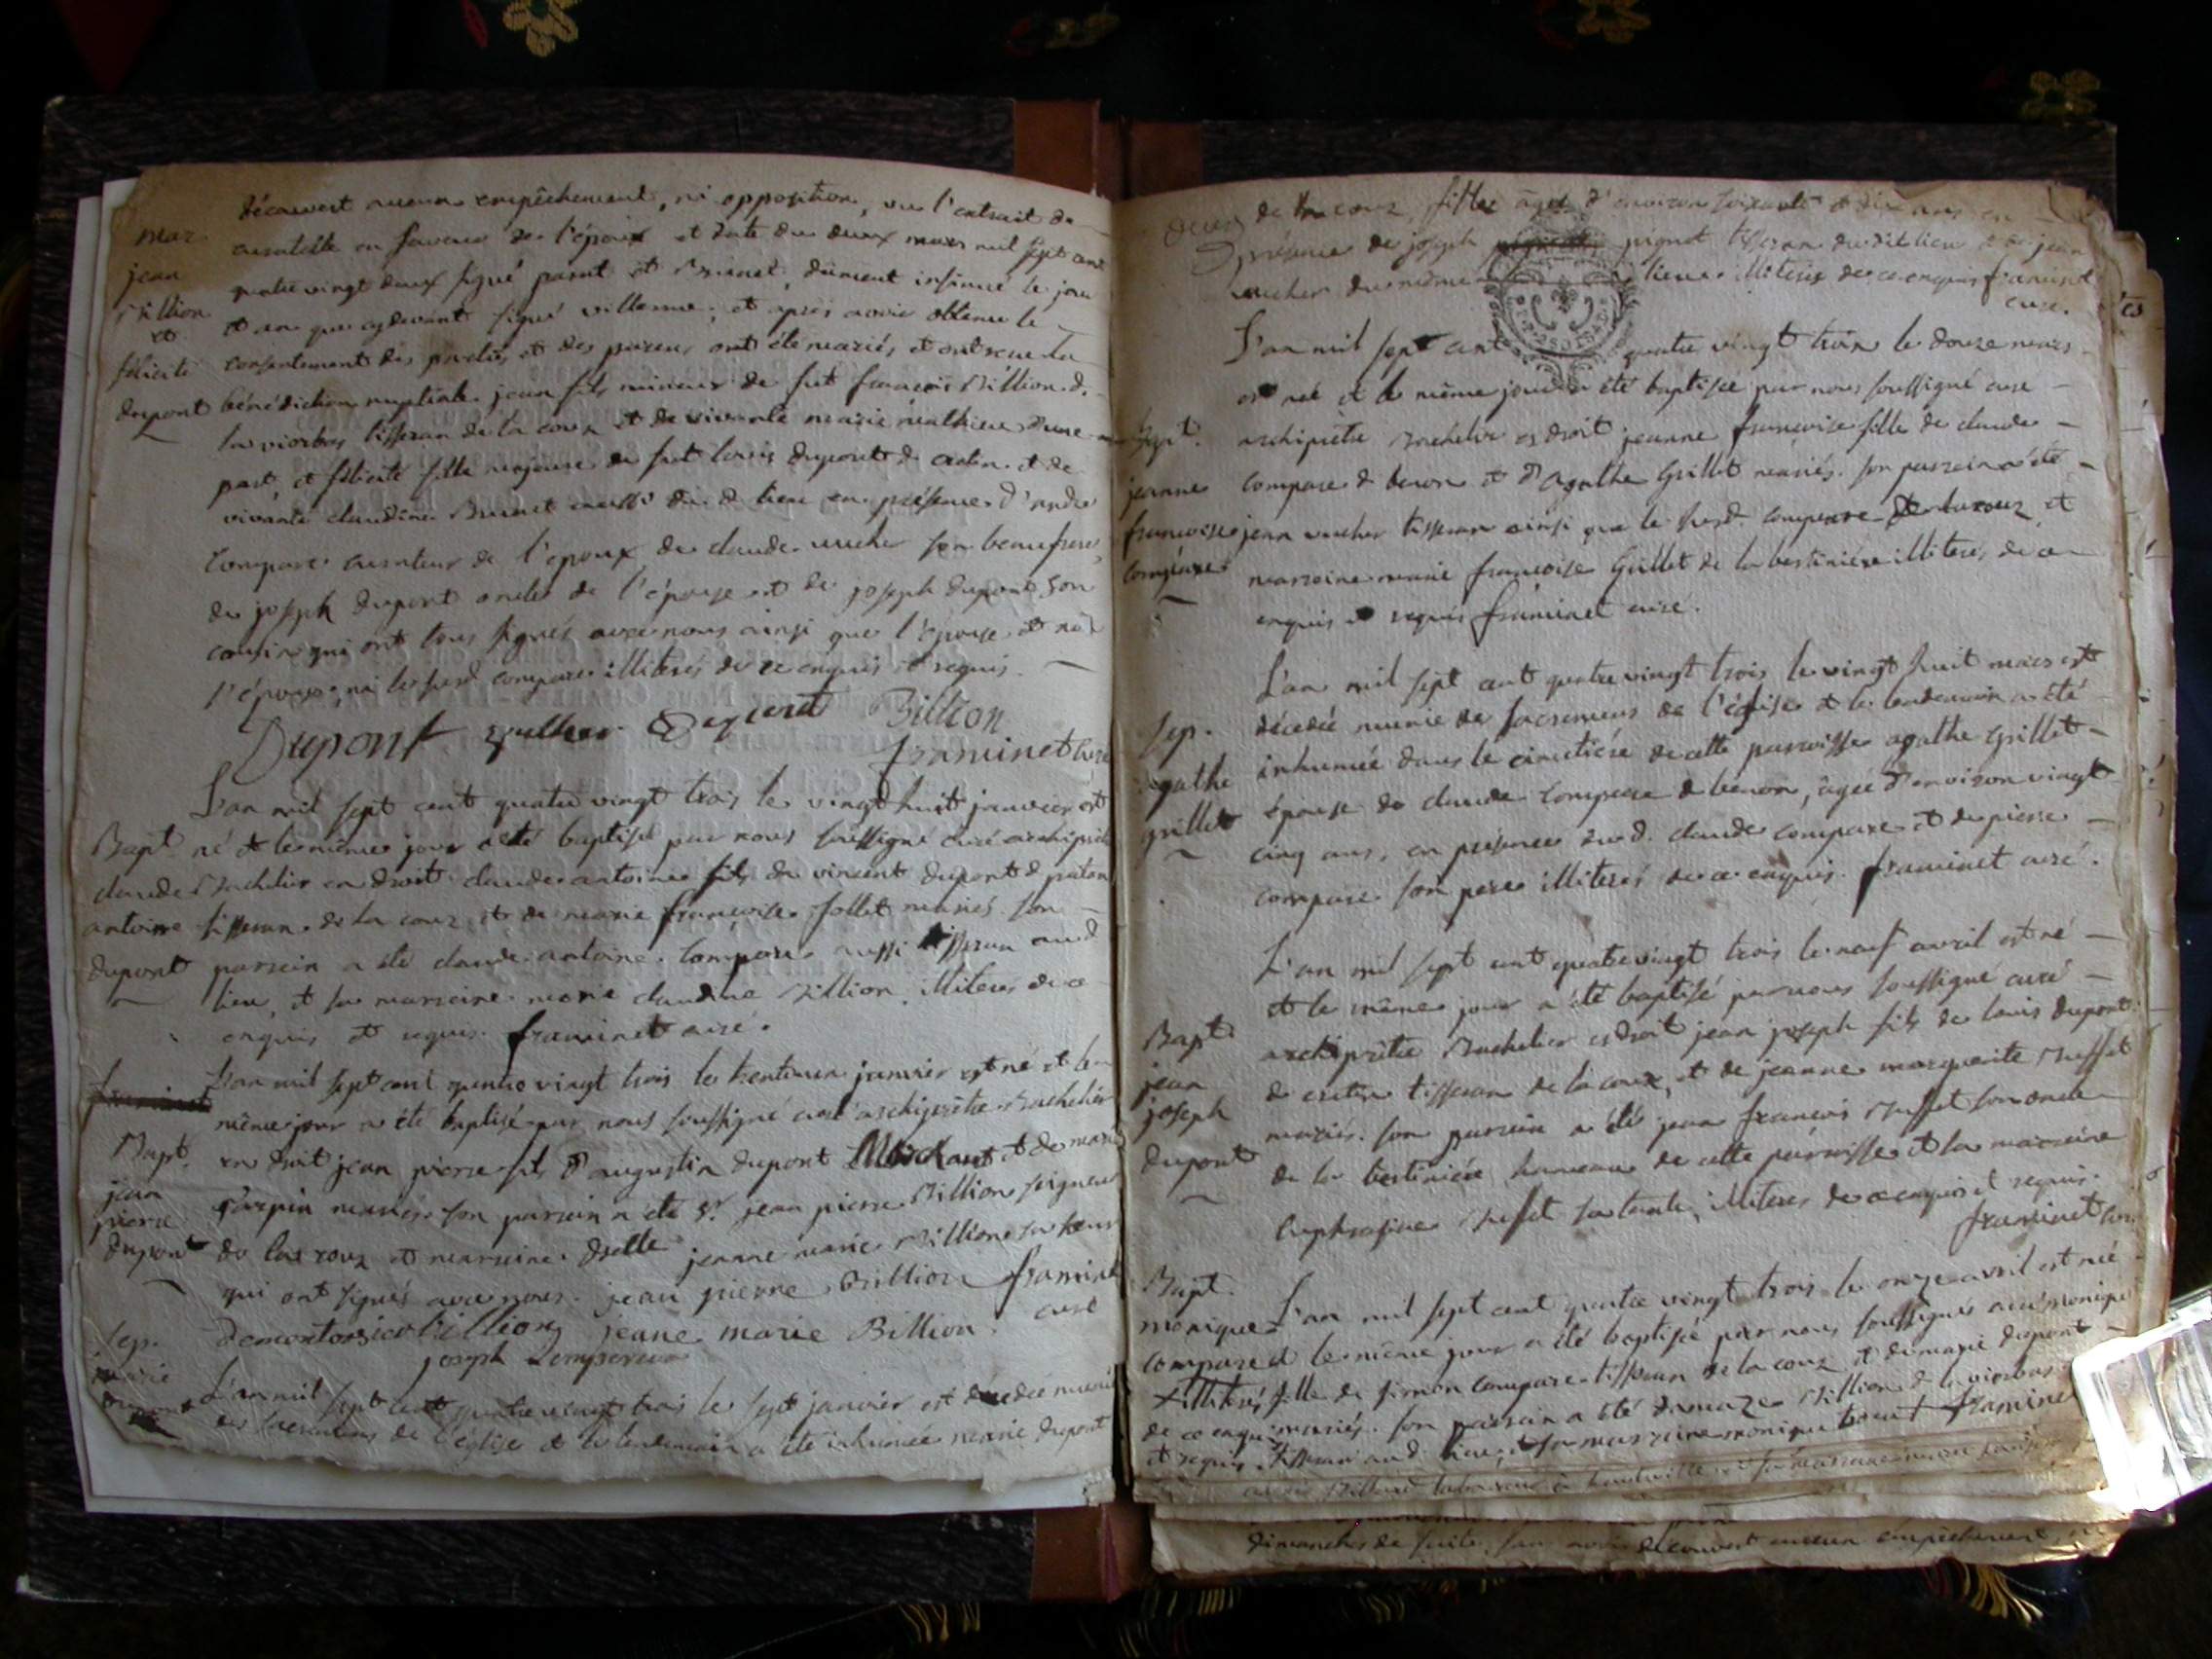 découvert aucun empêchement, ni opposition, vu l'extrait de
mar. curatelle en faveur de l'époux et date du deux mars mil sept cent
jean quatre vingt deux signé parent et Brunet, düement insinué le jour
Billion et an que cydevant signé villerme, et après avoir obtenu le
et
félicité consentement des parties et des parens ont été mariés et ont reçu la
dupont bénédiction nuptiale jean fils mineur de fut françois Billion d.
la viorbas tisseran de la coux et de vivante marie mathieu d'une
part, et félicité fille majeure de fut louis dupont d. cretin et de
vivante claudine Brunet aussi du d. lieu en présence d'andré
compare curateur de l'époux, de claude vucher son beaufrere,
de joseph dupont oncle de l'épouse et de joseph dupont son
cousin qui ont tous signés avec nous ainsi que l'épouse et non
l'époux, ni le susd compare illiterés de ce enquis et requis.
Dupont vucher Dupont Billion
framinet curé
L'an mil sept cent quatre vingt trois le vingt huit janvier est
Bapt. né et le même jour a été baptisé par nous soussigné curé archiprêtre
claude Bachelier en droit claude antoine fils de vincent dupont d
antoine tisseran de la coux et de marie françoise follet mariés. son
dupont parrein a été claude antoine compare aussi tisseran aud
lieu, et sa marreine marie claudine Billion, illiteres de ce
enquis et requis. framinet curé.
L'an mil sept cent quatre vingt trois le trentieun janvier est né et le
même jour a été baptisé par nous soussigné curé archiprêtre Bachelier
Bapt. en droit jean pierre fils d'augustin dupont Marchant et de marie
jean mariés. son parrein a été Sr. jean pierre Billion seigneur
pierre
dupont de las roux et marreine dselle jeanne marie Billion sa seur
qui ont signés avec nous. jean pierre Billion framinet
curé
Sep. Billion jeane marie Billion
joseph
marie L'an mil sept cent quatre vingt trois le sept janvier est décédée munie
des sacremens de l'église et le lendemain a été inhumée marie dupont
de la coux, fille agée d'environ soixante et dix ans en
présence de joseph pignet tisseran dudit lieu et de jean
vucher du même lieu illiterés de ce enquis framinet
curé.
L'an mil sept cent quatre vingt trois le douze mars
est née et le même jour a été baptisée par nous soussigné curé
Bapt. archiprêtre Bachelier es droit jeanne françoise fille de claude
jeanne compare d. benon et d'agathe Grillet mariés. son parrein a été
françoise jean vucher tisseran ainsi que le susd. compare de la coux et
compare marreine marie françoise Grillet de la bertinière illiterés, de ce
enquis et requis framinet curé.
L'an mil sept cent quatre vingt trois le vingt huit mars est
Sep. décédée munie de sacremens de l'église et le lendemain a été
agathe inhumée dans le cimetière de cette paroisse agathe grillet
grillet épouse de claude compare d benon, âgée d'environ vingt
cinq ans, en présence dud. claude compare et de pierre
compare son pere illiterés de ce enquis. framinet curé.
L'an mil sept cent quatrevingt trois le neuf avril est né
et le même jour a été baptisé par nous soussigné curé
Bapt. archiprêtre Bachelier es droit jean joseph fils de louis dupont
jean d. cretin tisseran de la coux, et de jeanne marguerite
joseph mariés. son parrein a été jean françois son oncle
dupont de la bertinière hameau de cette paroisse et la marreine
euphrosine sa tante, illiteres de ce enquis et requis.
framinet curé.
Bapt.
monique L'an mil sept cent quatre vingt trois le onze avril est née
compare et le même jour a été baptisée par nous soussigné curé monique
+illiterés fille de simon compare tisseran de la coux et de marie dupont
de ce enquis mariés. son parrain a été Billion d. la viorbas
et requis tisseran aud. lieu, et sa marreine monique + framinet
dimanches de suite, sans avoir découvert aucun empêchement, ni